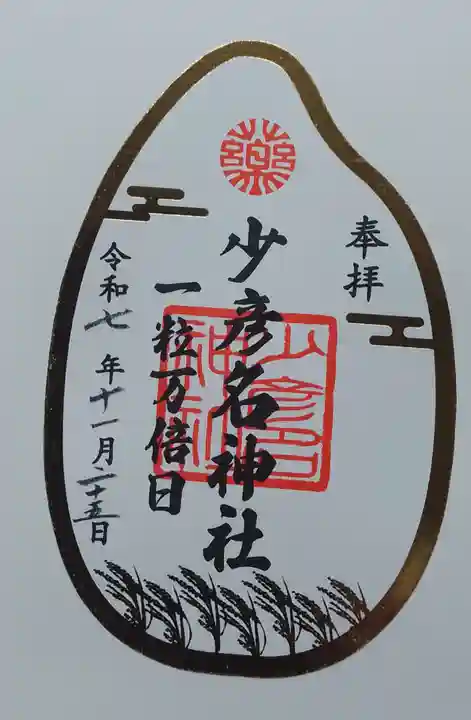 奉拝
少彦名神社
一粒万倍日
令和七年十一月二十五日